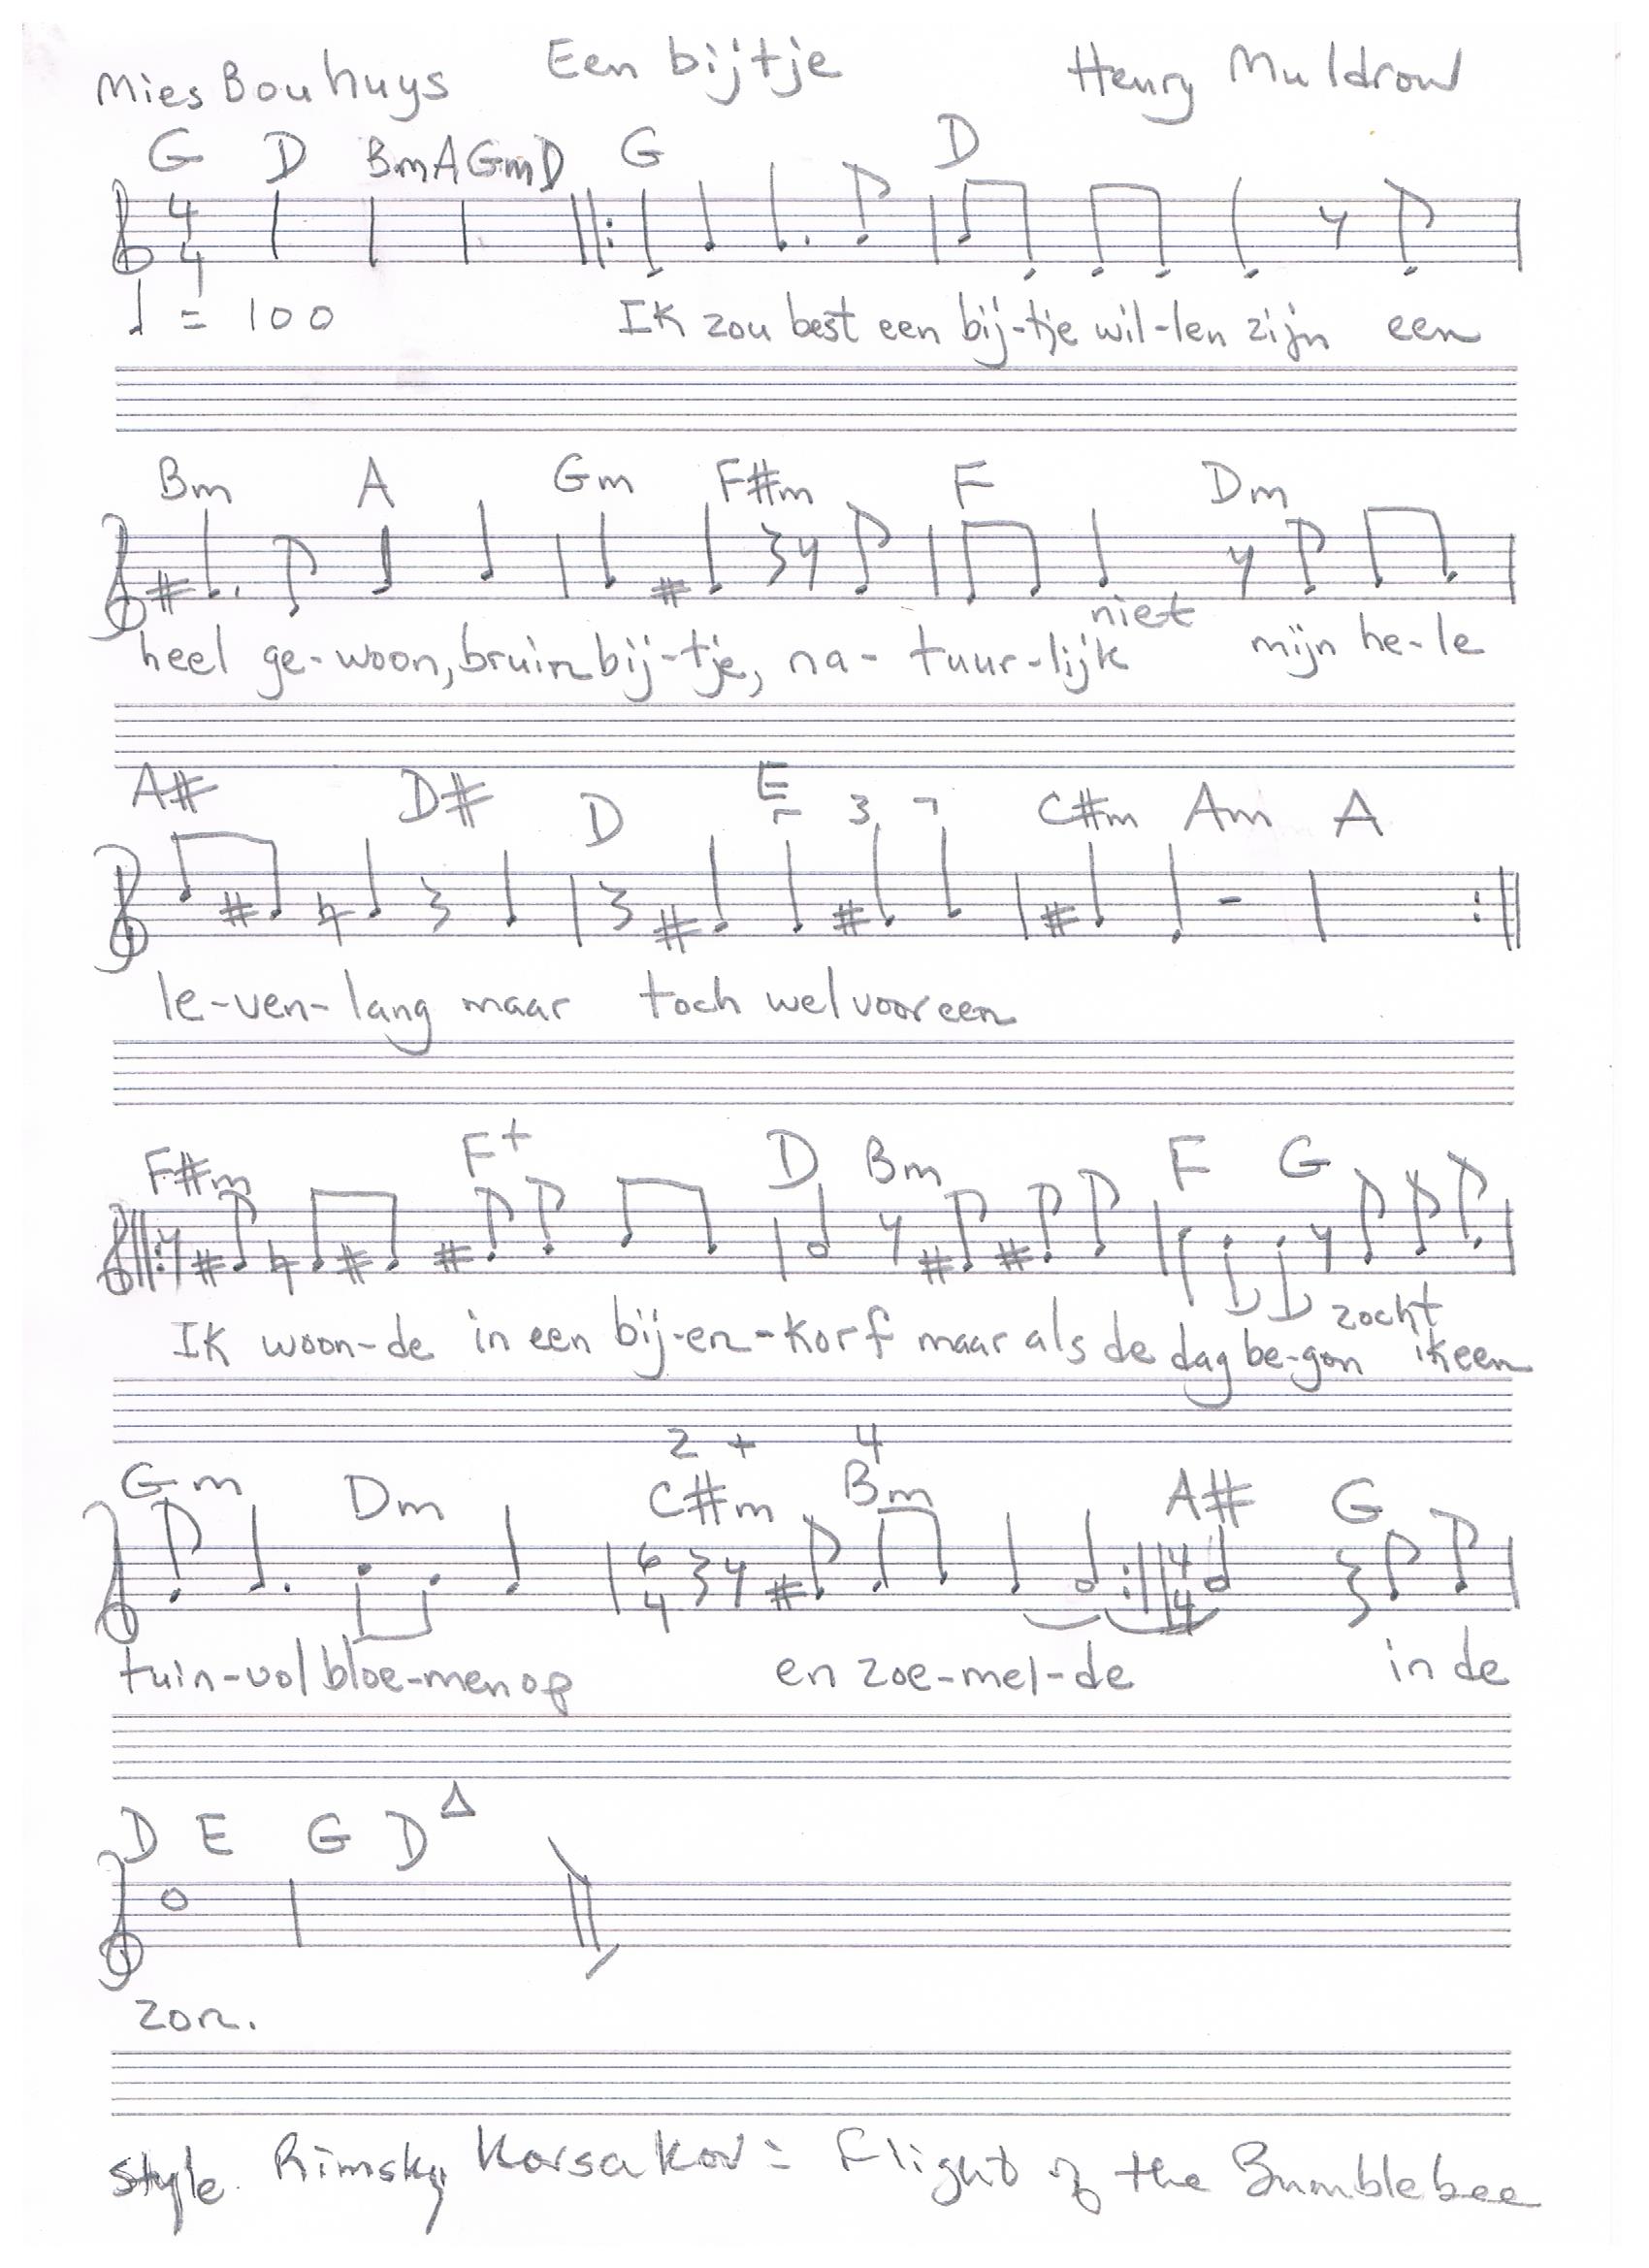 Mies Bouhuys Een bijtje Henry Muldrow
G D Bm A Gm D G D
4
4
♩ = 100
Ik zou best een bij-tje wil-len zijn een
Bm A Gm F#m F Dm
heel ge-woon, bruin bij-tje, na-tuur-lijk niet mijn he-le
A# D# D E 3 C#m Am A
le-ven-lang maar toch wel voor een
F#m F+ D Bm F G
Ik woon-de in een bij-en-korf maar als de dag be-gon zocht ik een
2 + 4
Gm Dm C#m Bm A# G
6
4
4
4
tuin-vol bloe-men op en zoe-mel-de in de
D E G D△
zon.
style Rimsky Korsakov = Flight of the Bumblebee